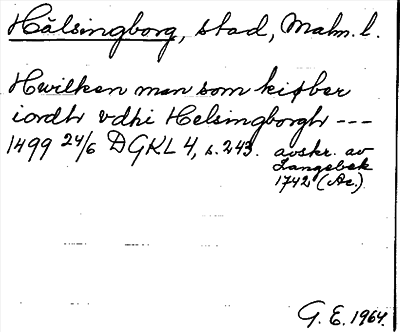 Hälsingborg, stad, Malm. l.
Hwilken man som kiøber
iordh vdhi Helsingborgh ---
1499 24/6 DGKL 4, s. 243. avskr. av
Langebek
1742 (Ac.)
G. E. 1964.